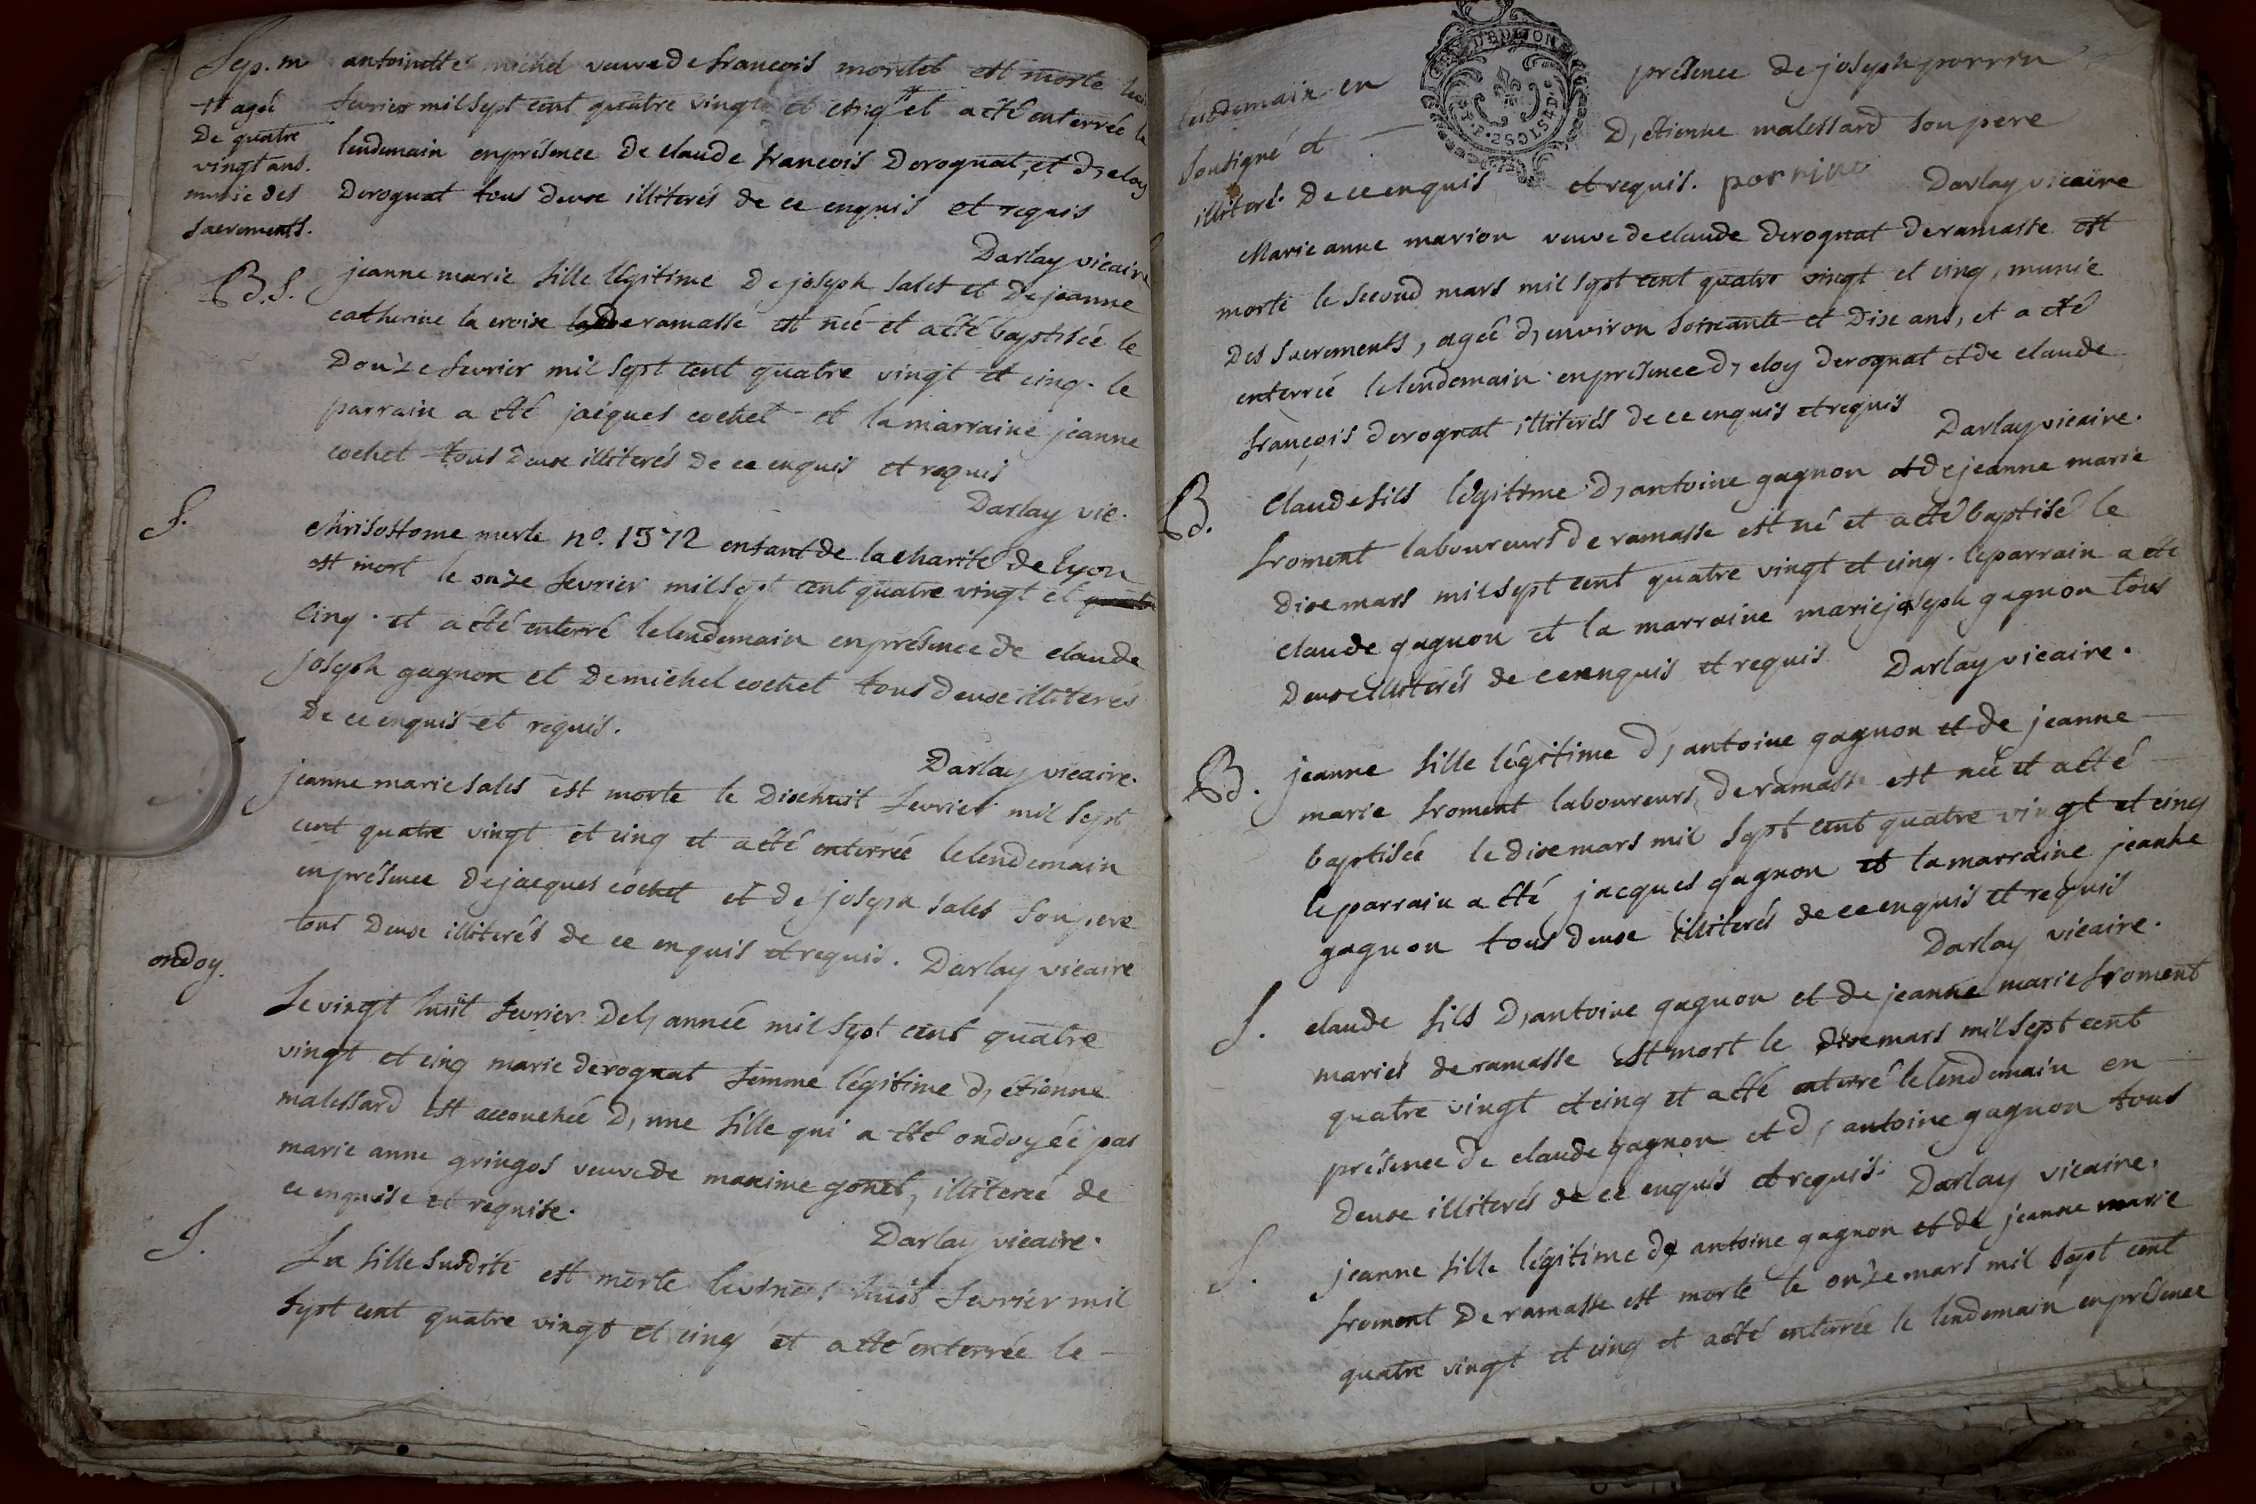 Sep. m antoinette michel veuve de francois mordet est morte
fevrier mil sept cent quatre vingt et cinq # et a eté enterrée le
lendemain en présence de claude francois Derognat, et d, eloy
Derognat tous deux illiterés de ce enquis et requis
Darlay vicaire
# agée
De quatre
vingt ans.
munie des
sacrements.
B. S.
jeanne marie fille légitime de joseph sales et de jeanne
catherine la croix de ramasse est née et a eté baptisée le
Douze fevrier mil sept cent quatre vingt et cinq. le
parrain a eté jacques cochet et la marraine jeanne
cochet tous deux illiterés de ce enquis et requis
Darlay vic.
S.
chrisostome merle n.o 1372 enfant de la charité de lyon
est mort le onze fevrier mil sept cent quatre vingt et
cinq. et a eté enterré le lendemain en présence de claude
joseph gagnon et de michel cochet tous deux illiterés
De ce enquis et requis.
Darlay vicaire.
jeanne marie sales est morte le dixe huit fevrier mil sept
cent quatre vingt et cinq et a eté enterrée le lendemain
en présence de jacques cochet et de joseph sales son pere
tous deux illiterés de ce enquis et requis. Darlay vicaire
ondoy.
Le vingt huit fevrier de l, année mil sept cent quatre
vingt et cinq marie derognat femme légitime d, etienne
malessard est accouchée d, une fille qui a eté ondoyée par
marie anne gringos veuve de maxime gonet, illiterée de
ce enquise et requise.
Darlay vicaire.
S.
La fille susdite est morte le vingt huit fevrier mil
sept cent quatre vingt et cinq et a eté enterrée le
lendemain en présence de joseph perrin
soussigné et D, etienne malessard son pere
illiteré de ce enquis et requis. perrin Darlay vicaire
Marie anne marion veuve de claude derognat de ramasse est
morte le second mars mil sept cent quatre vingt et cinq, munie
des sacrements, agée d, environ soixante et dixe ans, et a eté
enterrée le lendemain en présence d, eloy derognat et de claude
françois derognat illiterés de ce enquis et requis
Darlay vicaire.
B.
Claude fils légitime d, antoine gagnon et de jeanne marie
froment laboureurs de ramasse est né et a eté baptisé le
dixe mars mil sept cent quatre vingt et cinq. le parrain a eté
claude gagnon et la marraine marie joseph gagnon tous
deux illiterés de ce enquis et requis Darlay vicaire.
B.
jeanne fille légitime d, antoine gagnon et de jeanne
marie froment laboureurs de ramasse est née et a eté
baptisée le dixe mars mil sept cent quatre vingt et cinq
le parrain a eté jacques gagnon et la marraine jeanne
gagnon tous deux illiterés de ce enquis et requis
Darlay vicaire.
S.
claude fils d, antoine gagnon et de jeanne marie froment
mariés de ramasse est mort le dixe mars mil sept cent
quatre vingt et cinq et a eté enterré le lendemain en
présence de claude gagnon et d, antoine gagnon tous
deux illiterés de ce enquis et requis. Darlay vicaire.
S.
jeanne fille légitime de antoine gagnon et de jeanne marie
froment de ramasse est morte le onze mars mil sept cent
quatre vingt et cinq et a eté enterrée le lendemain en présence